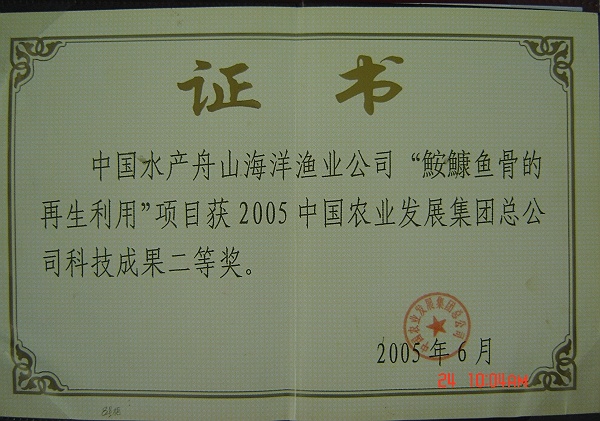 证书
中国水产舟山海洋渔业公司“鮟鱇鱼骨的
再生利用”项目获 2005 中国农业发展集团总公
司科技成果二等奖。
中国农业发展集团总公司
2005 年 6 月
24 10:04AM